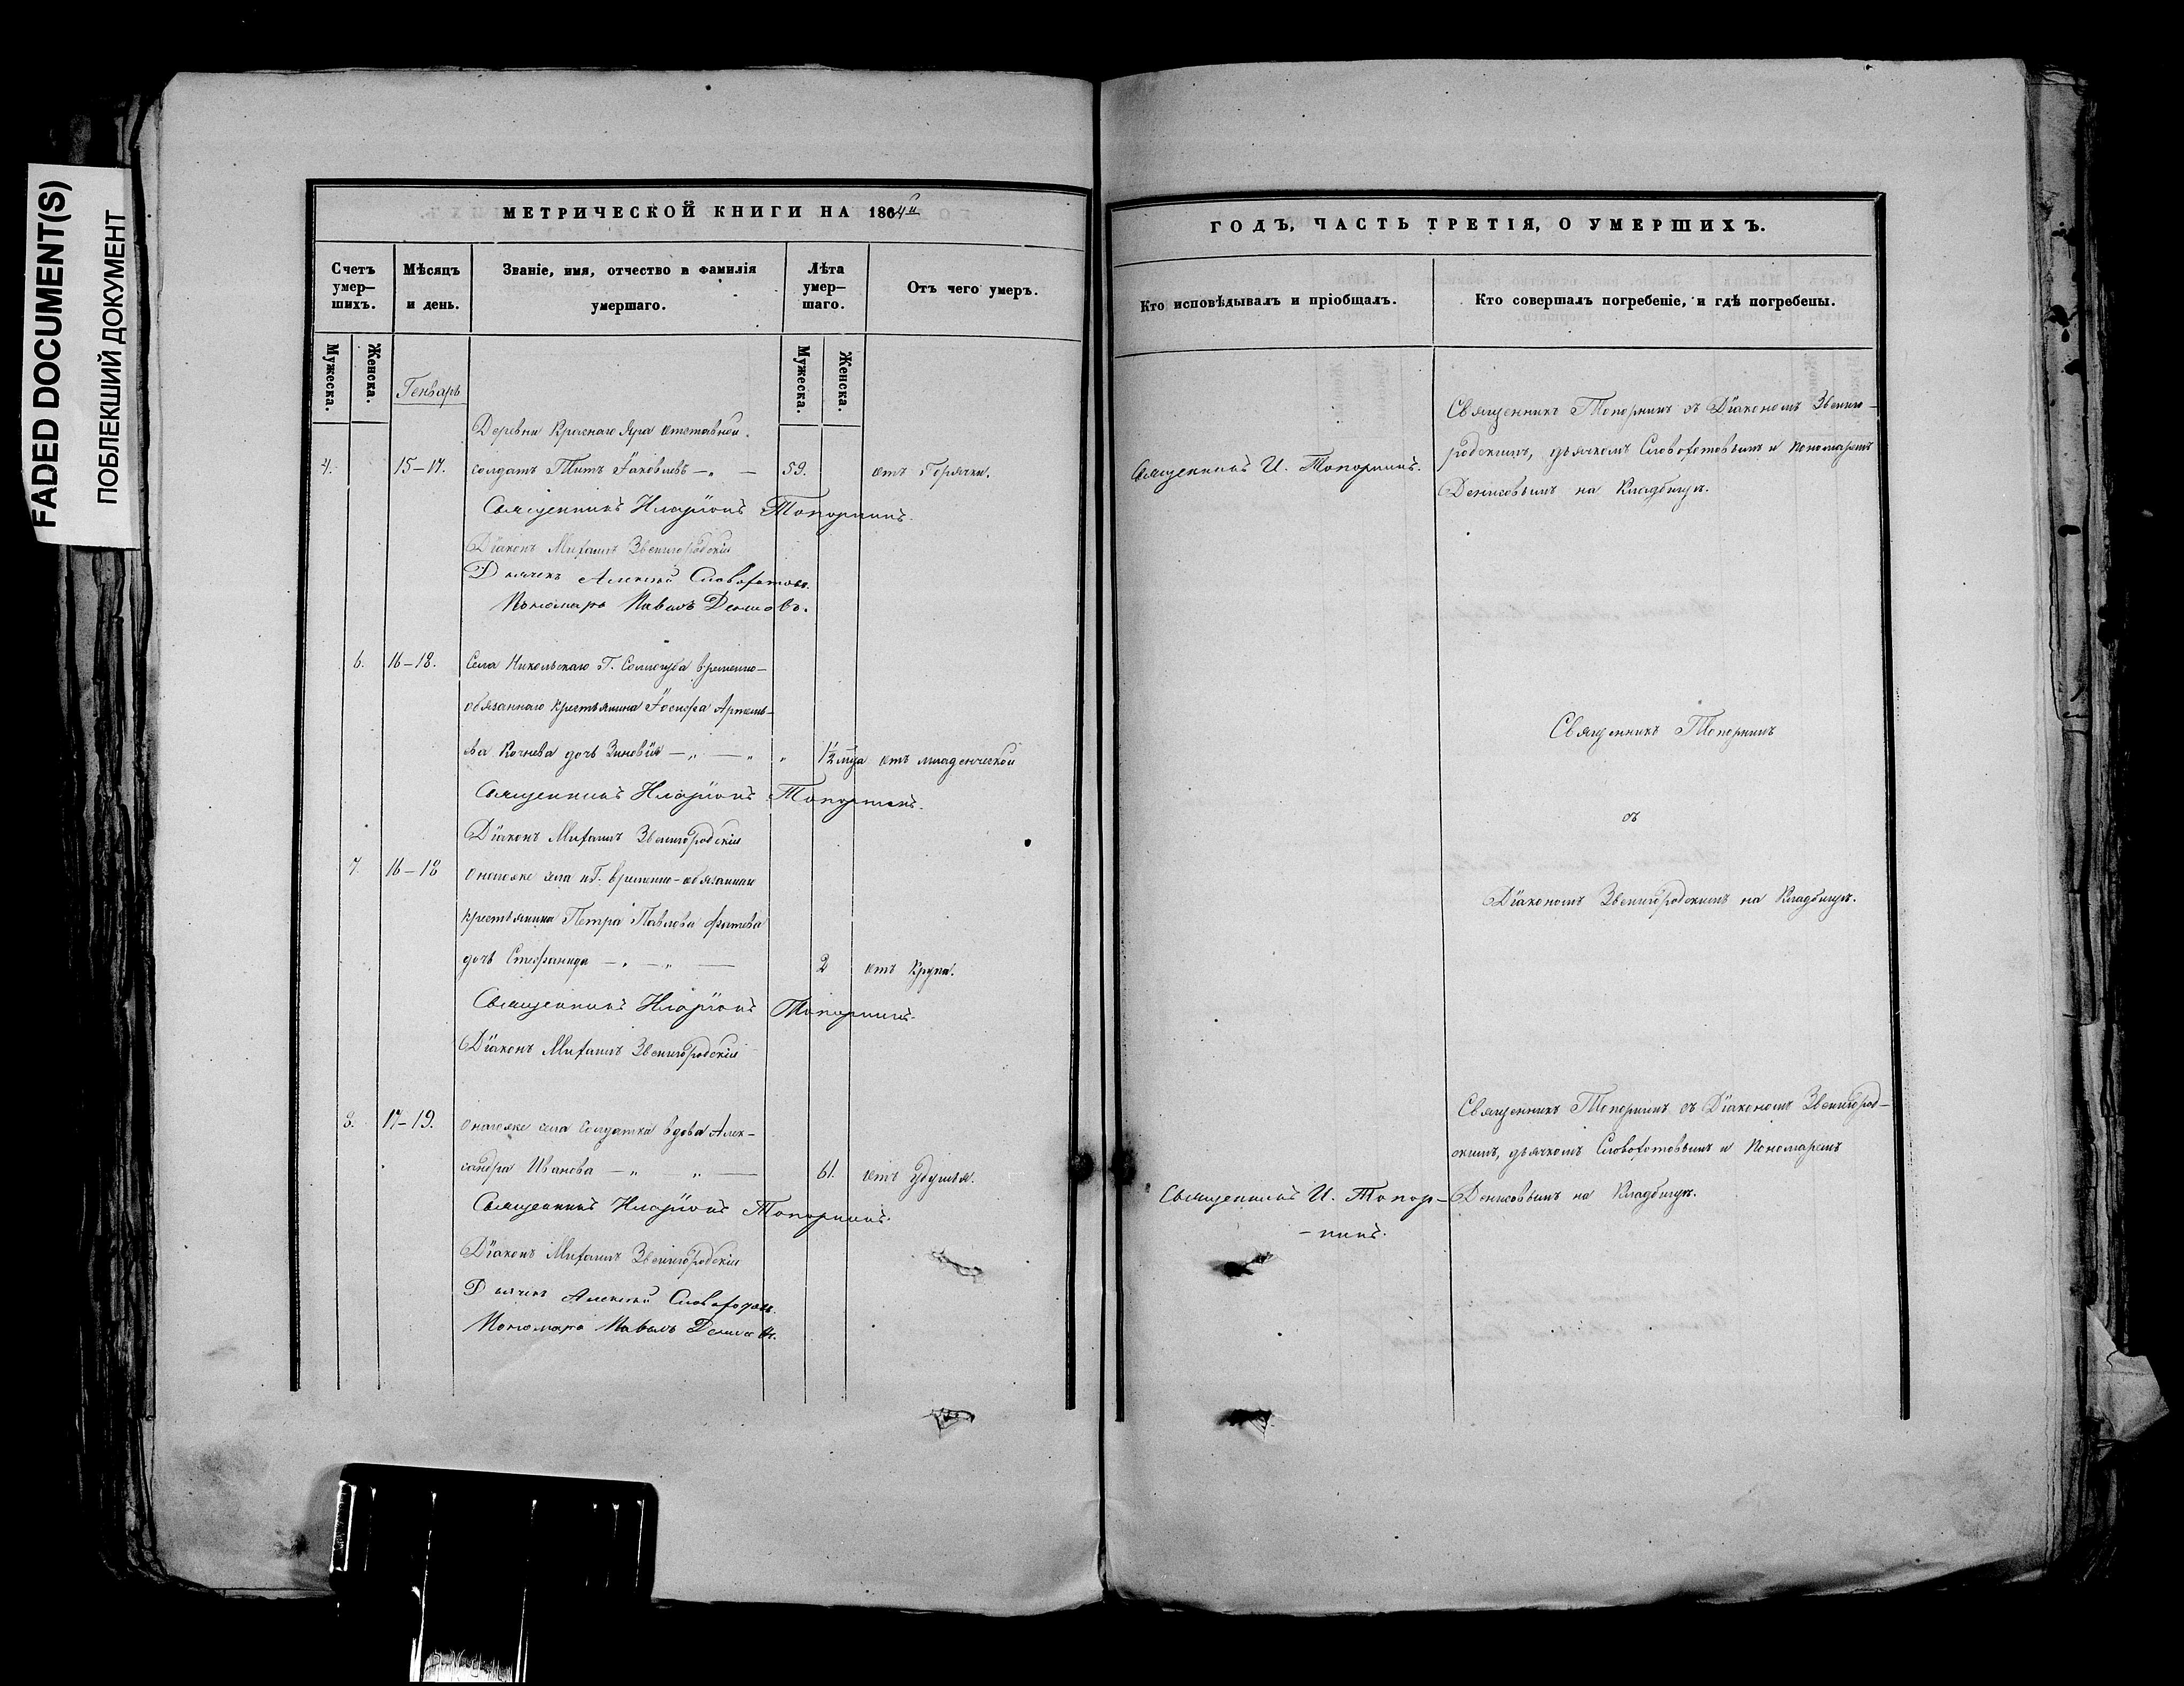 FADED DOCUMENT(S)
ПОБЛЕКШИЙ ДОКУМЕНТ
МЕТРИЧЕСКОЙ КНИГИ НА 1864й
Счетъ умер-шихъ.
Мѣсяцъ и день.
Званіе, имя, отчество и фамилія умершаго.
Лѣта умер-шаго.
Отъ чего умеръ.
Мужеска.
Женска.
Мужеска.
Женска.
Генварь
Деревни Краснаго Яра отставной
4. 15–17. солдатъ Титъ Іаковлевъ — „ — 59. отъ Горячки.
Священникъ Иларіонъ Топорнинъ.
Діаконъ Михаилъ Звенигородскій
Дьячекъ Алексѣй Словохотовъ.
Пономарь Павелъ Денисовъ.
6. 16–18. Села Никольскаго Г. Сологуба временно-
обязаннаго крестьянина Іосифа Артемь-
ева Кочнева дочь Зиновія — „ — „ „ 1½ мца отъ младенческой
Священникъ Иларіонъ Топорнинъ.
Діаконъ Михаилъ Звенигородскій
7. 16–18 Онагоже села и Г. временно-обязаннаго
крестьянина Петра Павлова
дочь Стефанида — „ — „ — 2 отъ Крупа.
Священникъ Иларіонъ Топорнинъ.
Діаконъ Михаилъ Звенигородскій
8. 17–19. Онагоже села Солдатка вдова Алек-
сандра Иванова — „ — „ — 61. отъ удушья.
Священникъ Иларіонъ Топорнинъ.
Діаконъ Михаилъ Звенигородскій
Дьячекъ Алексѣй Словохотовъ.
Пономарь Павелъ Денисовъ.
ГОДЪ, ЧАСТЬ ТРЕТІЯ, О УМЕРШИХЪ.
Кто исповѣдывалъ и пріобщалъ.
Кто совершалъ погребеніе, и гдѣ погребены.
Священникъ Топорнинъ съ Діакономъ Звениго-
родскимъ, дьячкомъ Словохотовымъ и пономаремъ
Священникъ И. Топорнинъ.
Денисовымъ на Кладбищѣ.
Священникъ Топорнинъ
съ
Діакономъ Звенигородскимъ на Кладбищѣ.
Священникъ Топорнинъ съ Діакономъ Звенигород-
скимъ, дьячкомъ Словохотовымъ и Пономаремъ
Священникъ И. Топор-
-нинъ.
Денисовымъ на Кладбищѣ.